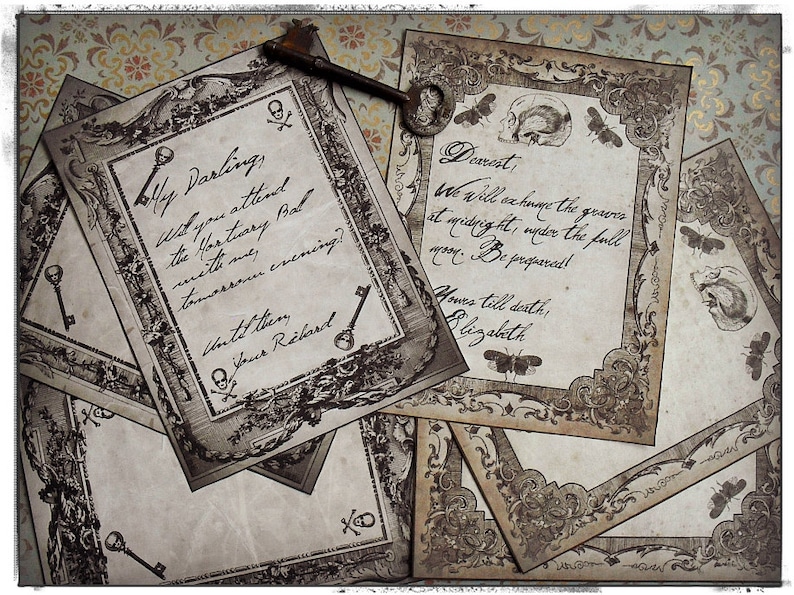 My Darling,
Will you attend
the Mortuary Ball
with me,
tomorrow evening?
Until then,
Your Rélard
Dearest,
We will exhume the graves
at midnight, under the full
moon. Be prepared!
Yours till death,
Elizabeth